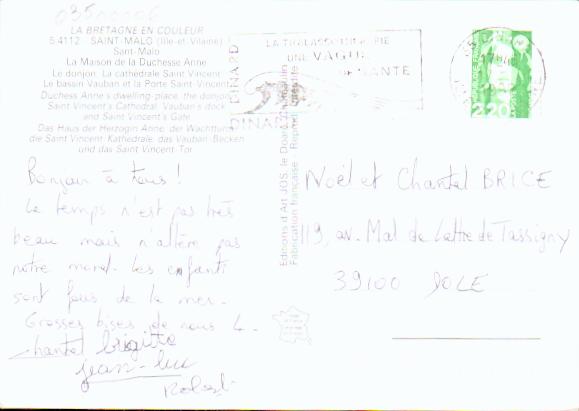 03500006
LA BRETAGNE EN COULEUR
S.4112 - SAINT-MALO (Ille-et-Vilaine)
Sant-Malo
La Maison de la Duchesse Anne
Le donjon. La cathédrale Saint Vincent
Le bassin Vauban et la Porte Saint-Vincent
Duchess Anne's dwelling-place, the donjon
Saint Vincent's Cathedral, Vauban's dock
and Saint Vincent's Gate
Das Haus der Herzogin Anne, der Wachtturm,
die Saint Vincent-Kathedrale, das Vauban-Becken
und das Saint Vincent-Tor
Bonjour à tous !
Le temps n'est pas très
beau mais n'altère pas
notre moral. Les enfants
sont fous de la mer.
Grosses bises de nous 4.
Chantal Brigitte
Jean-Luc
Robert
DINARD
LA THALASSOTHERAPIE
UNE VAGUE
DE SANTE
DINARD
Editions d'Art JOS, le Doaré, Châteaulin
Fabrication française - Reprod. interdite
2,20
Noël et Chantal BRICE
119, av. Mal de Lattre de Tassigny
39100 DOLE